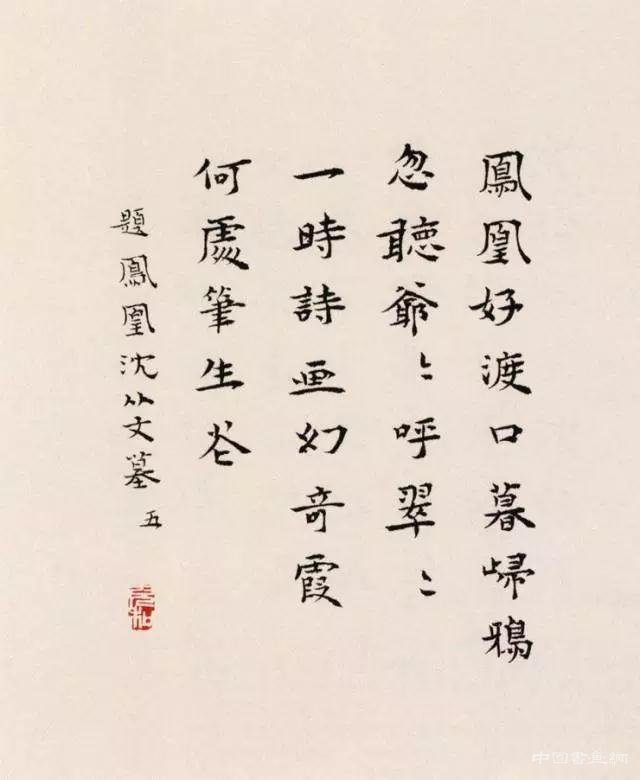 鳳凰好渡口暮㱕鴉
忽聽爺〻呼翠〻
一時詩画幻奇霞
何處筆生花
題鳳凰沈从文墓 五
中国書画網